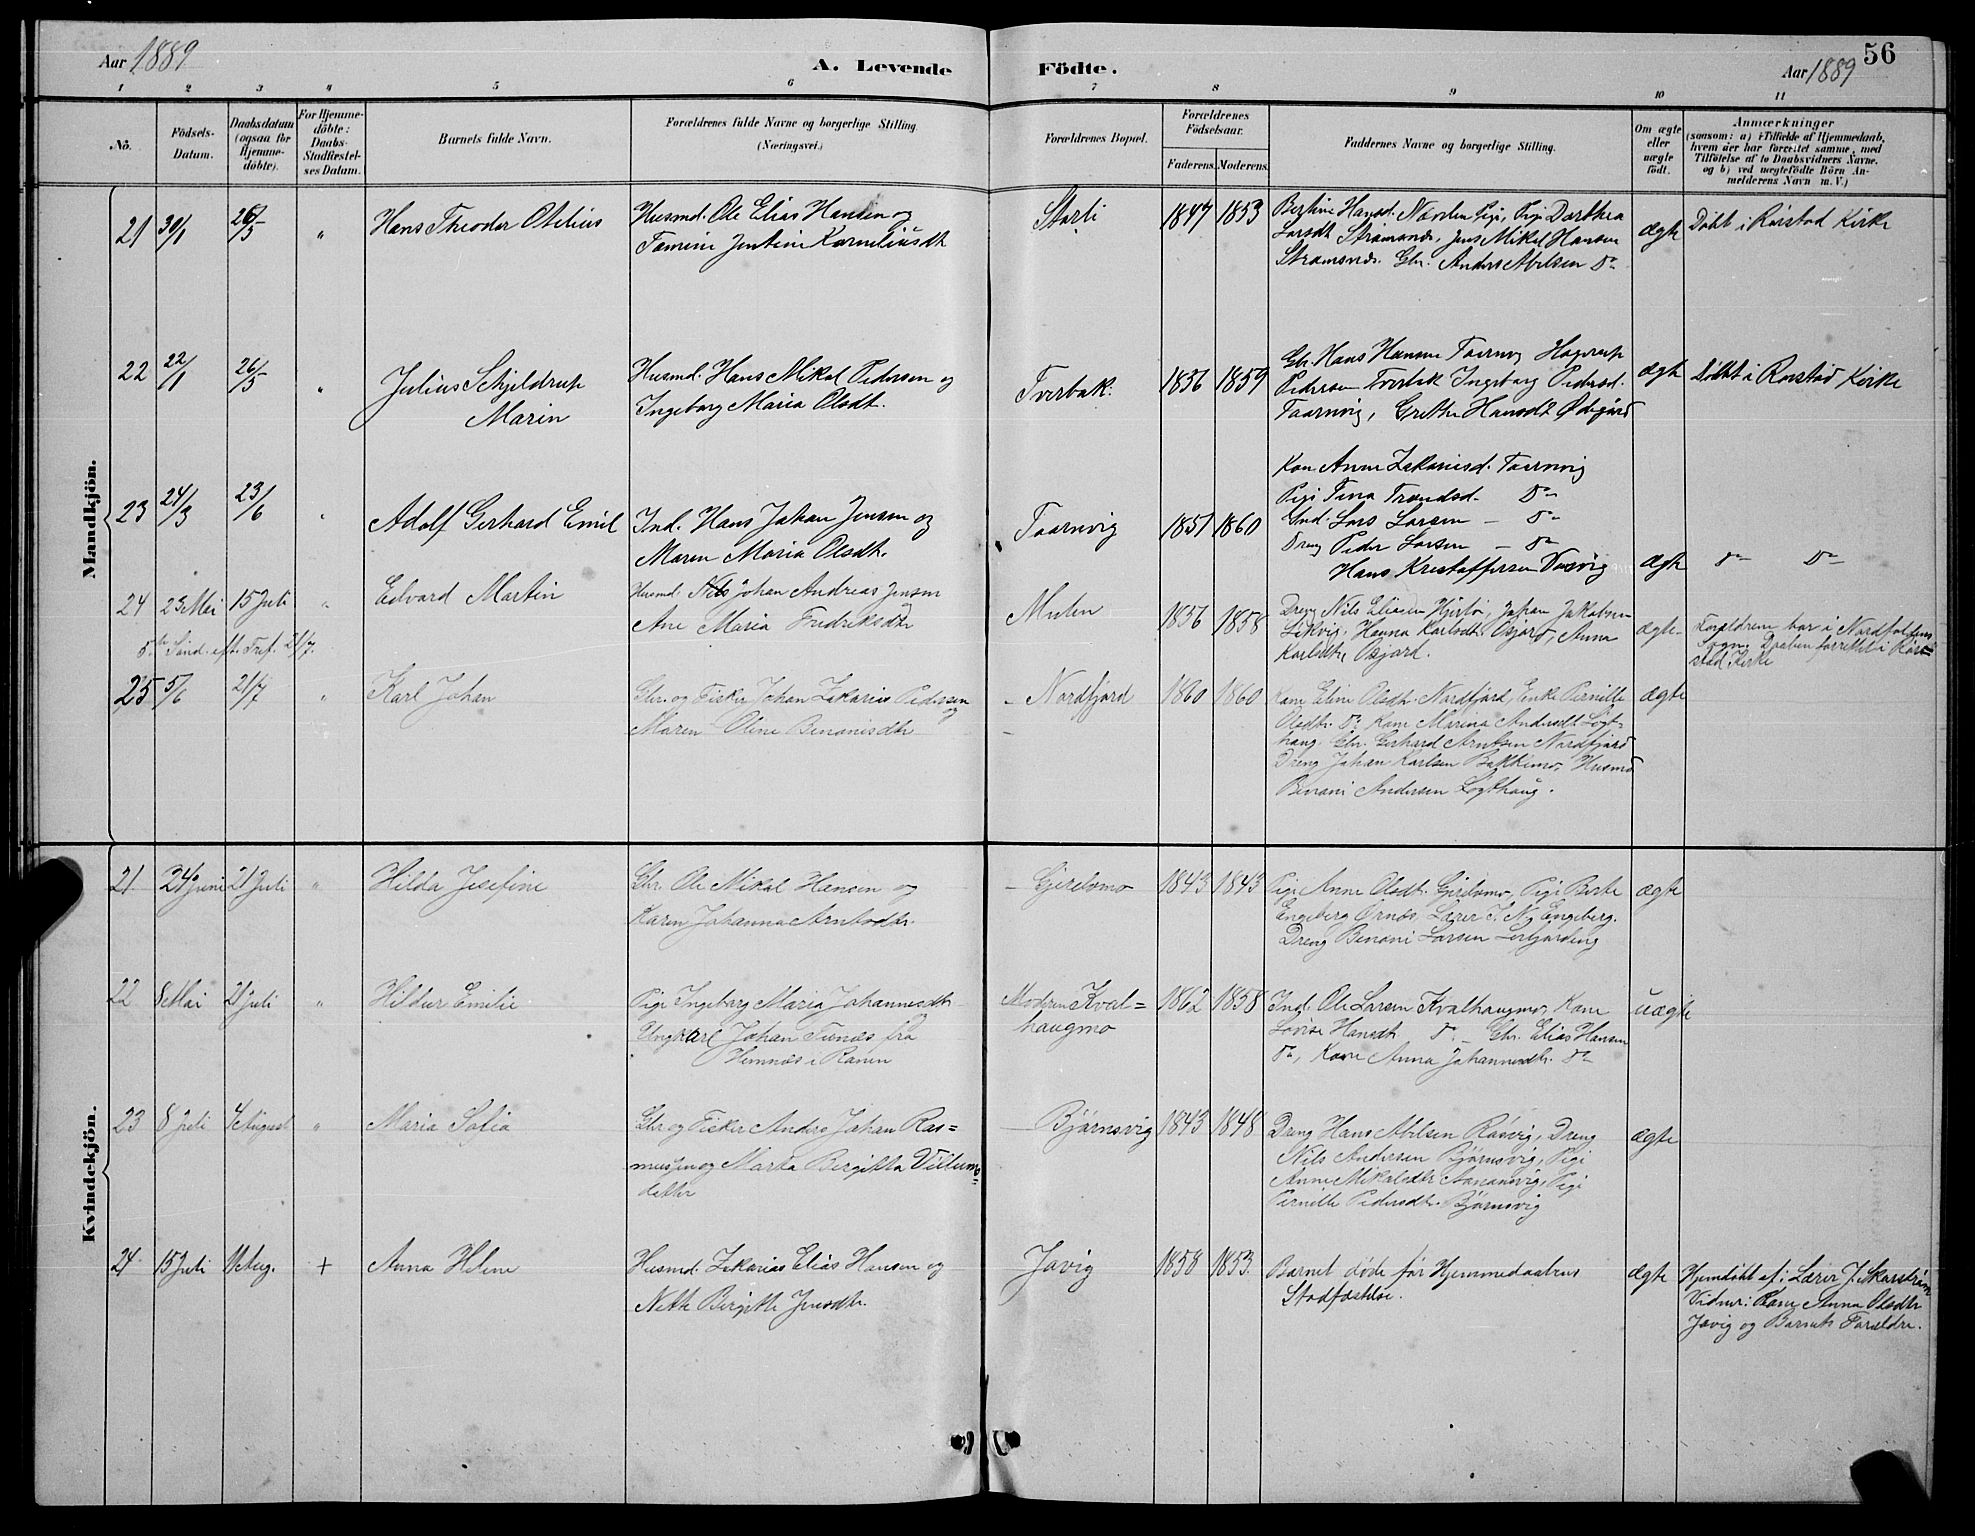 Aar 1889
A. Levende Födte.
Aar 1889
56
1 2 3 4 5 6 7 8 9 10 11
No.
Födsels-
Datum.
Daabsdatum
(ogsaa for
Hjemme-
döbte).
For Hjemme-
döbte:
Daabs-
Stadfæstel-
ses Datum.
Barnets fulde Navn.
Forældrenes fulde Navne og borgerlige Stilling.
(Næringsvei.)
Forældrenes Bopæl.
Forældrenes
Födselsaar.
Faderens. Moderens.
Faddernes Navne og borgerlige Stilling.
Om ægte
eller
uægte
födt.
Anmærkninger
(saasom: a) i Tilfælde af Hjemmedaab,
hvem der har forrettet samme, med
Tilföielse af to Daabsvidners Navne,
og b) ved uægtefödte Börn An-
melderens Navn m. V.)
Mandkjön.
21 30/1 26/5 " Hans Theodor Otelius
Husmd. Ole Elias Hansen og
Tamine Jentine Korneliusdt
Storli 1847 1853
Bertine Hansd. Næverlen Pige, Pige Dorthea
Larsdt Strømsnes, Jens Mikal Hansen
Strømsnes. Gbr. Anders Abelsen Do
ægte Døbt i Rørstad Kirke
22 22/1 26/5 " Julius Schjeldrup
Marin
Husmd. Hans Mikal Pedersen og
Ingeborg Maria Olsdt.
Tverbak. 1856 1859
Gbr. Hans Hansen Taarnvig Hagerup
Pedersen Tverbak Ingeborg Pedersd.
Taarnvig, Grethe Hansdt Ødegård
ægte Døbt i Rørstad Kirke
23 24/3 23/6 " Adolf Gerhard Emil
Ind. Hans Johan Jensen og
Maren Maria Olsdt.
Taarnvig 1851 1860
Kone Anne Zakariasd. Taarnvig
Pige Tina Trondsd. Do
Ind. Lars Larsen — Do
Dreng Peder Larsen — Do
Hans Kristoffersen Væsvig
ægte Do Do
24 23 Mai 15 Juli " Edvard Martin
5te Sønd. eft. Tref. 21/7.
Husmd. Nils Johan Andreas Jensen
Ane Maria Fredriksdtr
Mulen 1856 1858
Dreng Nils Eliasen Hjertø, Johan Jakobsen
Leikvig, Hanna Karlsdt. Osjord, Anna
Karlsdtr, Osjord.
ægte Forældrene bor i Nordfoldens
Sogn. Daaben forrettet i Rør-
stad Kirke
25 5/6 21/7 " Karl Johan
Gbr. og Fisker Johan Zakarias Pedersen
og
Maren Oline Benonisdtr
Nordfjord 1860 1860
Kone Eline Olsdt. Nordfjord, Enke Pernille
Olsdtr. Do Kone Marina Andersdt. Løgt-
haug. Gbr. Gerhard Arntsen Nordfjord
Dreng Johan Karlsen Bakkemo, Husmd
Benoni Andersen Løgthaug.
ægte
Kvindekjön.
21 24 Juni 21 Juli " Hilda Josefine
Gbr. Ole Mikal Hansen og
Karen Johanna Arntsdtr.
Gjerelvmo 1843 1843
Pige Anne Olsdt. Gjerelvmo, Pige Berte
Engeberg Ørnes, Lærer J. N. Engeberg.
Dreng Benoni Larsen Leirfjording
ægte
22 8 Mai 21 Juli " Hildur Emilie
Pige Ingeborg Maria Johannesdtr
og
Ungkarl Johan Tunæs fra
Hemnæs i Ranen
Moderen Kval-
haugmo 1862 1858
Ind. Ole Larsen Kvalhaugmo, Kone
Lovise Hansdt Do — Gbr. Elias Hansen
Do, Kone Anna Johannesdtr. Do
uægte
23 8 Juli 4 August " Maria Sofia
Gbr og Fisker Anders Johan Ras-
mussen og Marta Birgitta Villums-
datter
Bjørnsvig 1843 1848
Dreng Hans Abelsen Røsvig, Dreng
Nils Andersen Bjørnsvig, Pige
Anne Mikalsdtr Aasjansvig, Pige
Pernille Pedersdt. Bjørnsvig
ægte
24 15 Juli 11 Aug. + Anna Helene
Husmd. Zakarias Elias Hansen og
Netta Birgitte Jensdtr.
Javig 1858 1853.
Barnet døde før Hjemmedaabens
Stadfæstelse.
ægte Hjemdøbt af: Lærer J. Skarstrøm
Vidner: Kone Anna Olsdtr
Javig og Barnets Forældre.